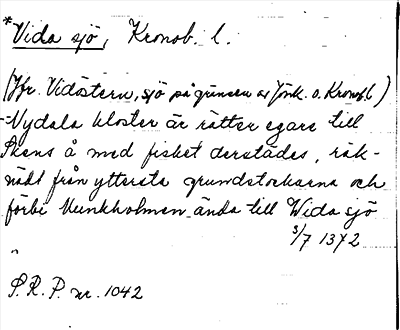 *Vida sjö, Kronob. l.
(Jfr. Vidöstern, sjö på gränsen av Jönk. o. Kronob. l)
-Nydala kloster är rätter egare till
Skens å med fisket derstädes, räk-
nadt från yttersta grundstockarna och
förbi Munkholmen ända till Wida sjö
3/7 1372
S.R.P. nr. 1042